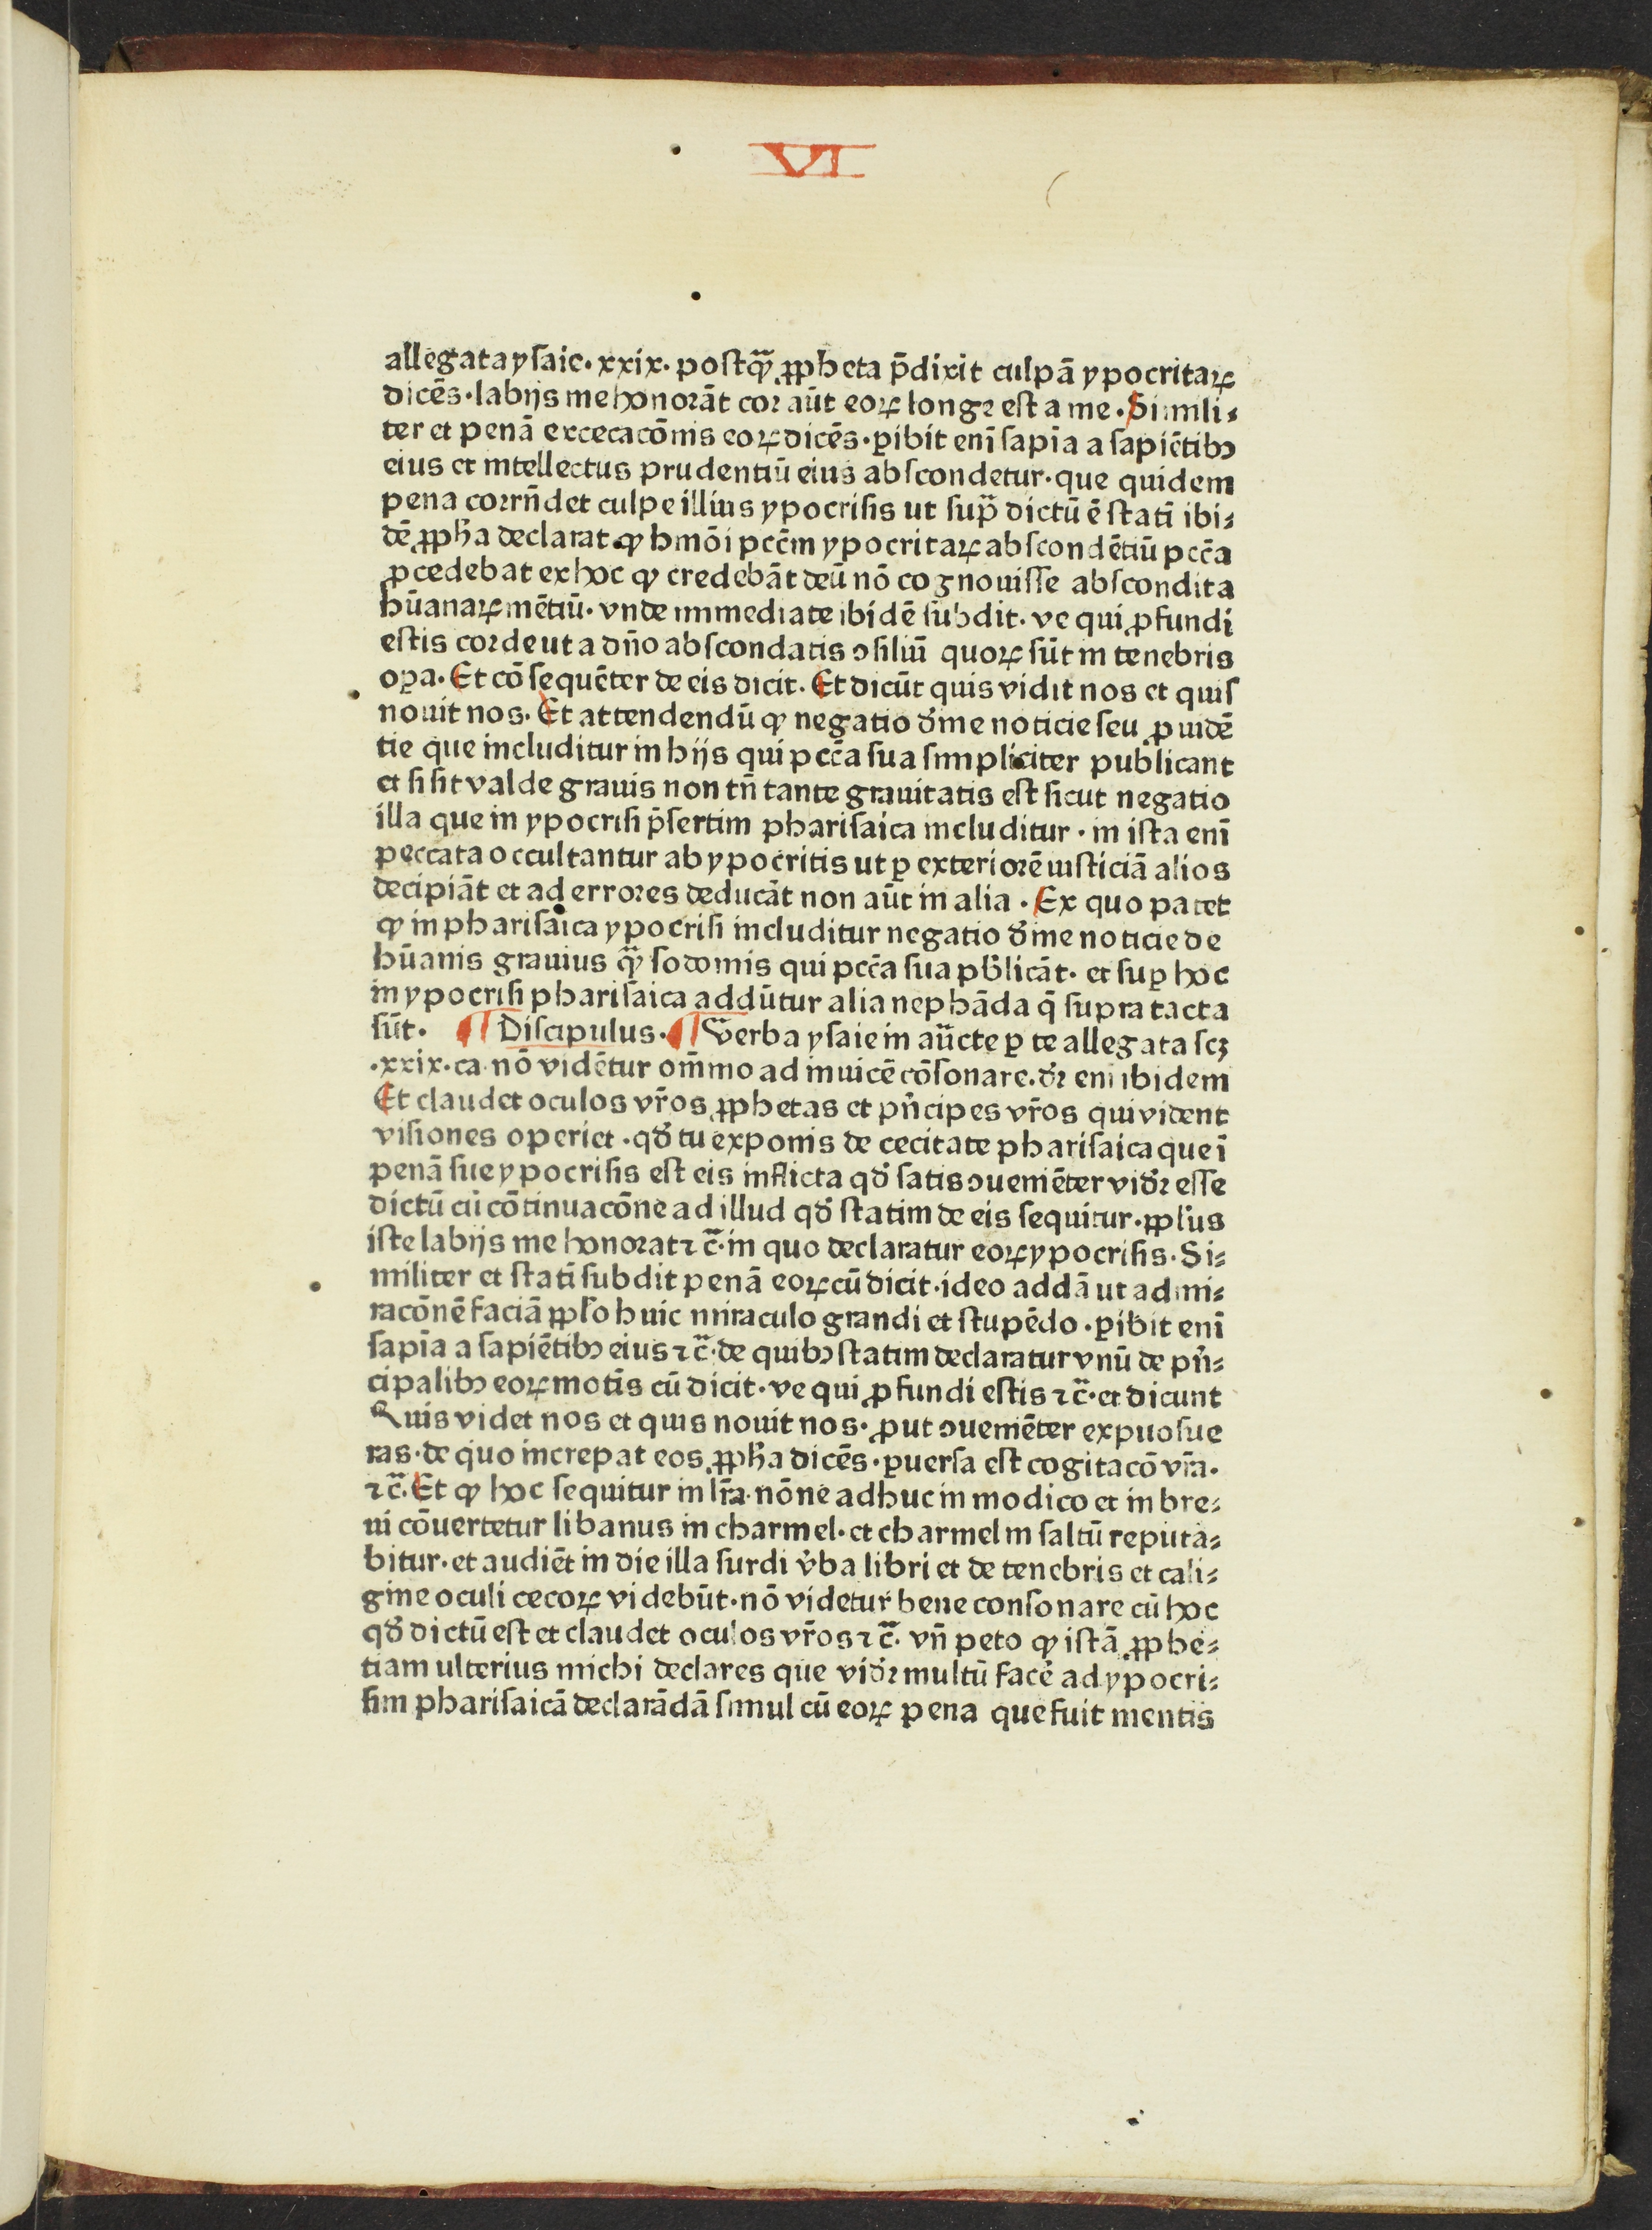 VI
allegata ysaie. xxix. postꝙ̃ ꝓpheta p̄dixit culpā ypocritaꝝ
dicēs. labijs me honorāt cor aūt eoꝝ longe est a me. Simili⸗
ter et penā excecacōnis eoꝝ dicēs. ꝑibit enī sapīa a sapiētibꝰ
eius et intellectus prudentiū eius abscondetur. que quidem
pena corrn̄det culpe illius ypocrisis ut sup̄ dictū ē statī ibi⸗
dē ꝓpħa declarat ꝙ hmōi pccm̄ ypocritaꝝ abscondētiū pcc̄a
ꝓcedebat ex hoc ꝙ credebāt deū nō cognouisse abscondita
hūanaꝝ mētiū. vnde immediate ibidē subdit. ve qui ꝓfundi
estis corde ut a dn̄o abscondatis ɔsiliū quoꝝ sūt in tenebris
oꝑa. Et cōsequēter de eis dicit. Et dicūt quis vidit nos et quis
nouit nos. Et attendendū ꝙ negatio diu̾ine noticie seu ꝓuidē
tie que includitur in hijs qui pcc̄a sua simpliciter publicant
et si sit valde grauis non tn̄ tante grauitatis est sicut negatio
illa que in ypocrisi p̄sertim pharisaica includitur. in ista enī
peccata occultantur ab ypocritis ut ꝑ exteriorē iusticiā alios
decipiāt et ad errores deducāt non aūt in alia. Ex quo patet
ꝙ in pharisaica ypocrisi includitur negatio diu̾ine noticie de
hūanis grauius ꝙ̃ sodomis qui pcc̄a sua pb̾licāt. et suꝑ hoc
in ypocrisi pharisaica addūtur alia nephāda q̄ supra tacta
sūt. ¶ Discipulus. ¶ Verba ysaie in aūcte ꝑ te allegata scꝫ
.xxix. ca. nō vidētur om̄mo ad inuicē cōsonare. dr̾ enī ibidem
Et claudet oculos vr̄os ꝓphetas et pn̾cipes vr̄os qui vident
visiones operiet. qd̾ tu exponis de cecitate pharisaica que ī
penā sue ypocrisis est eis inflicta qd̾ satis ɔueniēter vid̾r esse
dictū cū cōtinuacōne ad illud qd̾ statim de eis sequitur. ppl̾us
iste labijs me honorat ⁊ c̄. in quo declaratur eoꝝ ypocrisis. Si⸗
militer et statī subdit penā eoꝝ cū dicit. ideo addā ut admi⸗
racōnē faciā ppl̾o huic miraculo grandi et stupēdo. ꝑibit enī
sapīa a sapiētibꝰ eius ⁊ c̄. de quibꝰ statim declaratur vnū de pn̾⸗
cipalibꝰ eoꝝ motīs cū dicit. ve qui ꝓfundi estis ⁊ c̄. et dicunt
Quis videt nos et quis nouit nos. ꝓut ɔueniēter expuosue
ras. de quo increpat eos ꝓpħa dicēs. ꝑuersa est cogitacō vr̄a.
⁊ c̄. Et ꝙ hoc sequitur in lr̄a. nōne adhuc in modico et in bre⸗
ui cōuertetur libanus in charmel. et charmel in saltū reputa⸗
bitur. et audiēt in die illa surdi v̾ba libri et de tenebris et cali⸗
gine oculi cecoꝝ videbūt. nō videtur bene consonare cū hoc
qd̾ dictū est et claudet oculos vr̄os ⁊ c̄. vn̄ peto ꝙ istā ꝓphe⸗
tiam ulterius michi declares que vid̾r multū face̾ ad ypocri⸗
sim pharisaicā declarādā simul cū eoꝝ pena que fuit mentis